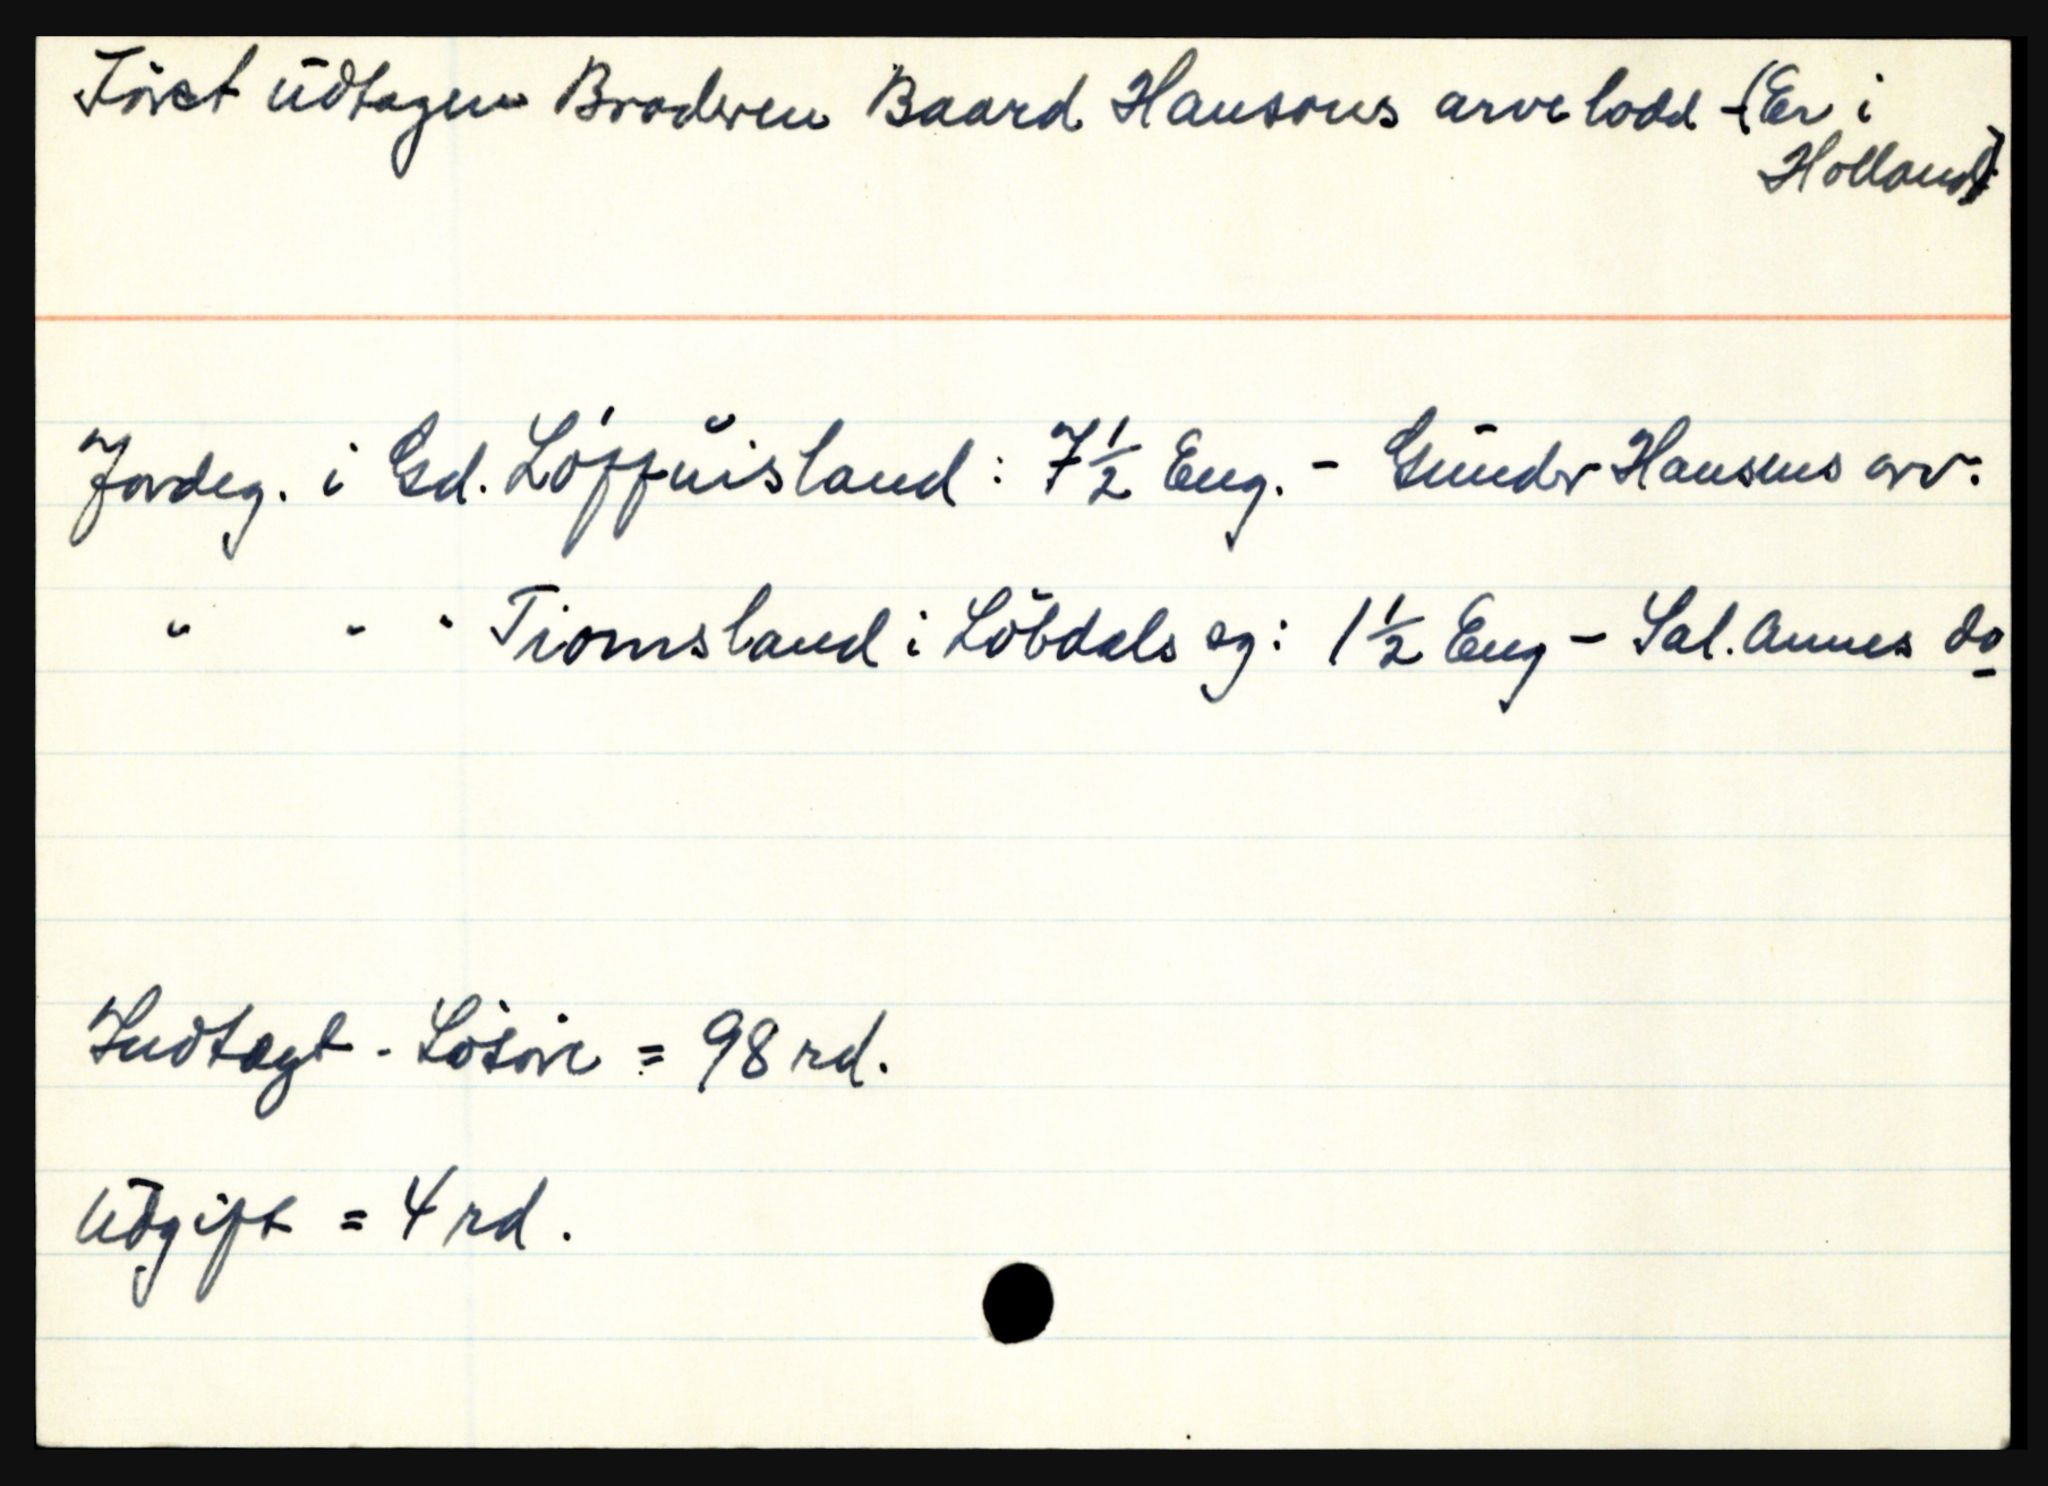 Först udtagen Broderen Baard Hansøns arvelodd - (Er i
Holland)
Jordeg. i Gd. Löffuisland : 7½ Eng. - Gunder Hansens arv:
" " " Tiomsland i Löbdals sg: 1½ Eng - Sal. Annes do
Indtægt - Løsøre = 98 rd.
Udgift = 4 rd.